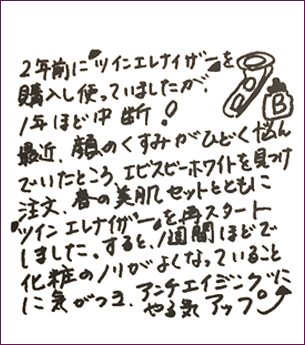 ２年前に“ツインエレナイザー”を
購入し使っていましたが、
１年ほど中断！
最近、顔のくすみがひどく悩ん
でいたところ、エピスビーホワイトを見つけ
注文、春の美肌セットとともに
“ツインエレナイザー”を再スタート
しました。すると、１週間ほどで
化粧のノリがよくなっていること
に気がつき、アンチエイジングに
やる気アップ。
B